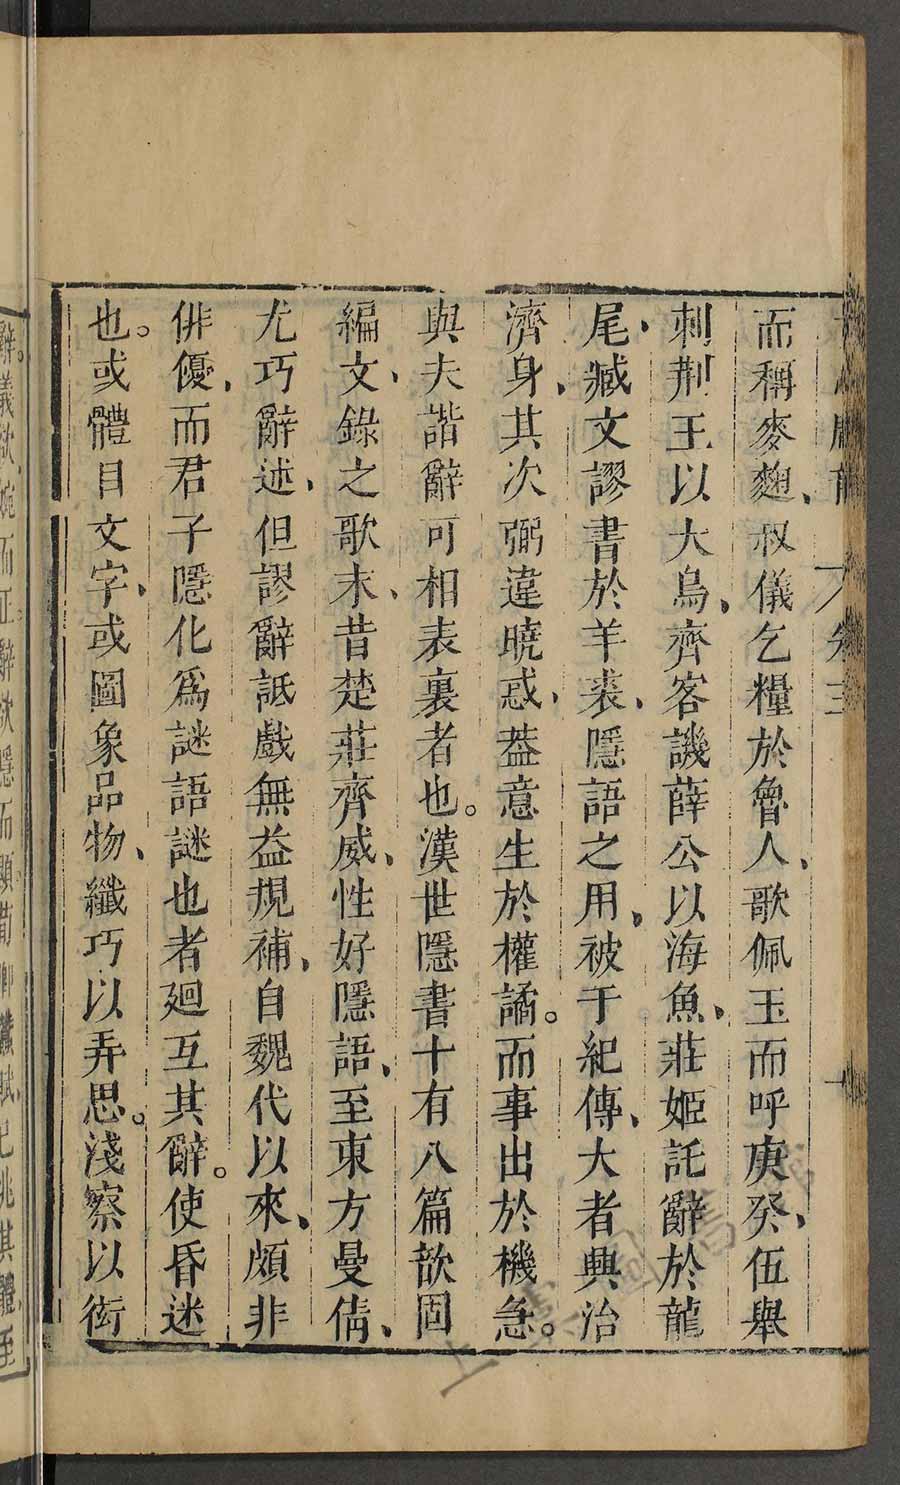 文心雕龍 卷三
而稱麥麯、叔儀乞糧於魯人、歌佩玉而呼庚癸、伍舉
刺荆王以大鳥、齊客譏薛公以海魚、莊姬託辭於龍
尾、臧文謬書於羊裘、隱語之用、被于紀傳、大者興治
濟身、其次弼違曉惑、葢意生於權譎。而事出於機急。
與夫諧辭可相表裏者也。漢世隱書十有八篇歆固
編文、錄之歌末、昔楚莊齊威、性好隱語、至東方曼倩、
尤巧辭述、但謬辭詆戲無益規補、自魏代以來、頗非
俳優、而君子隱化爲謎語謎也者廻互其辭。使昏迷
也。或體目文字、或圖象品物、纖巧以弄思。淺察以衒
辭。義欲婉而正辭欲隱而顯荀卿蠶賦已兆其體至